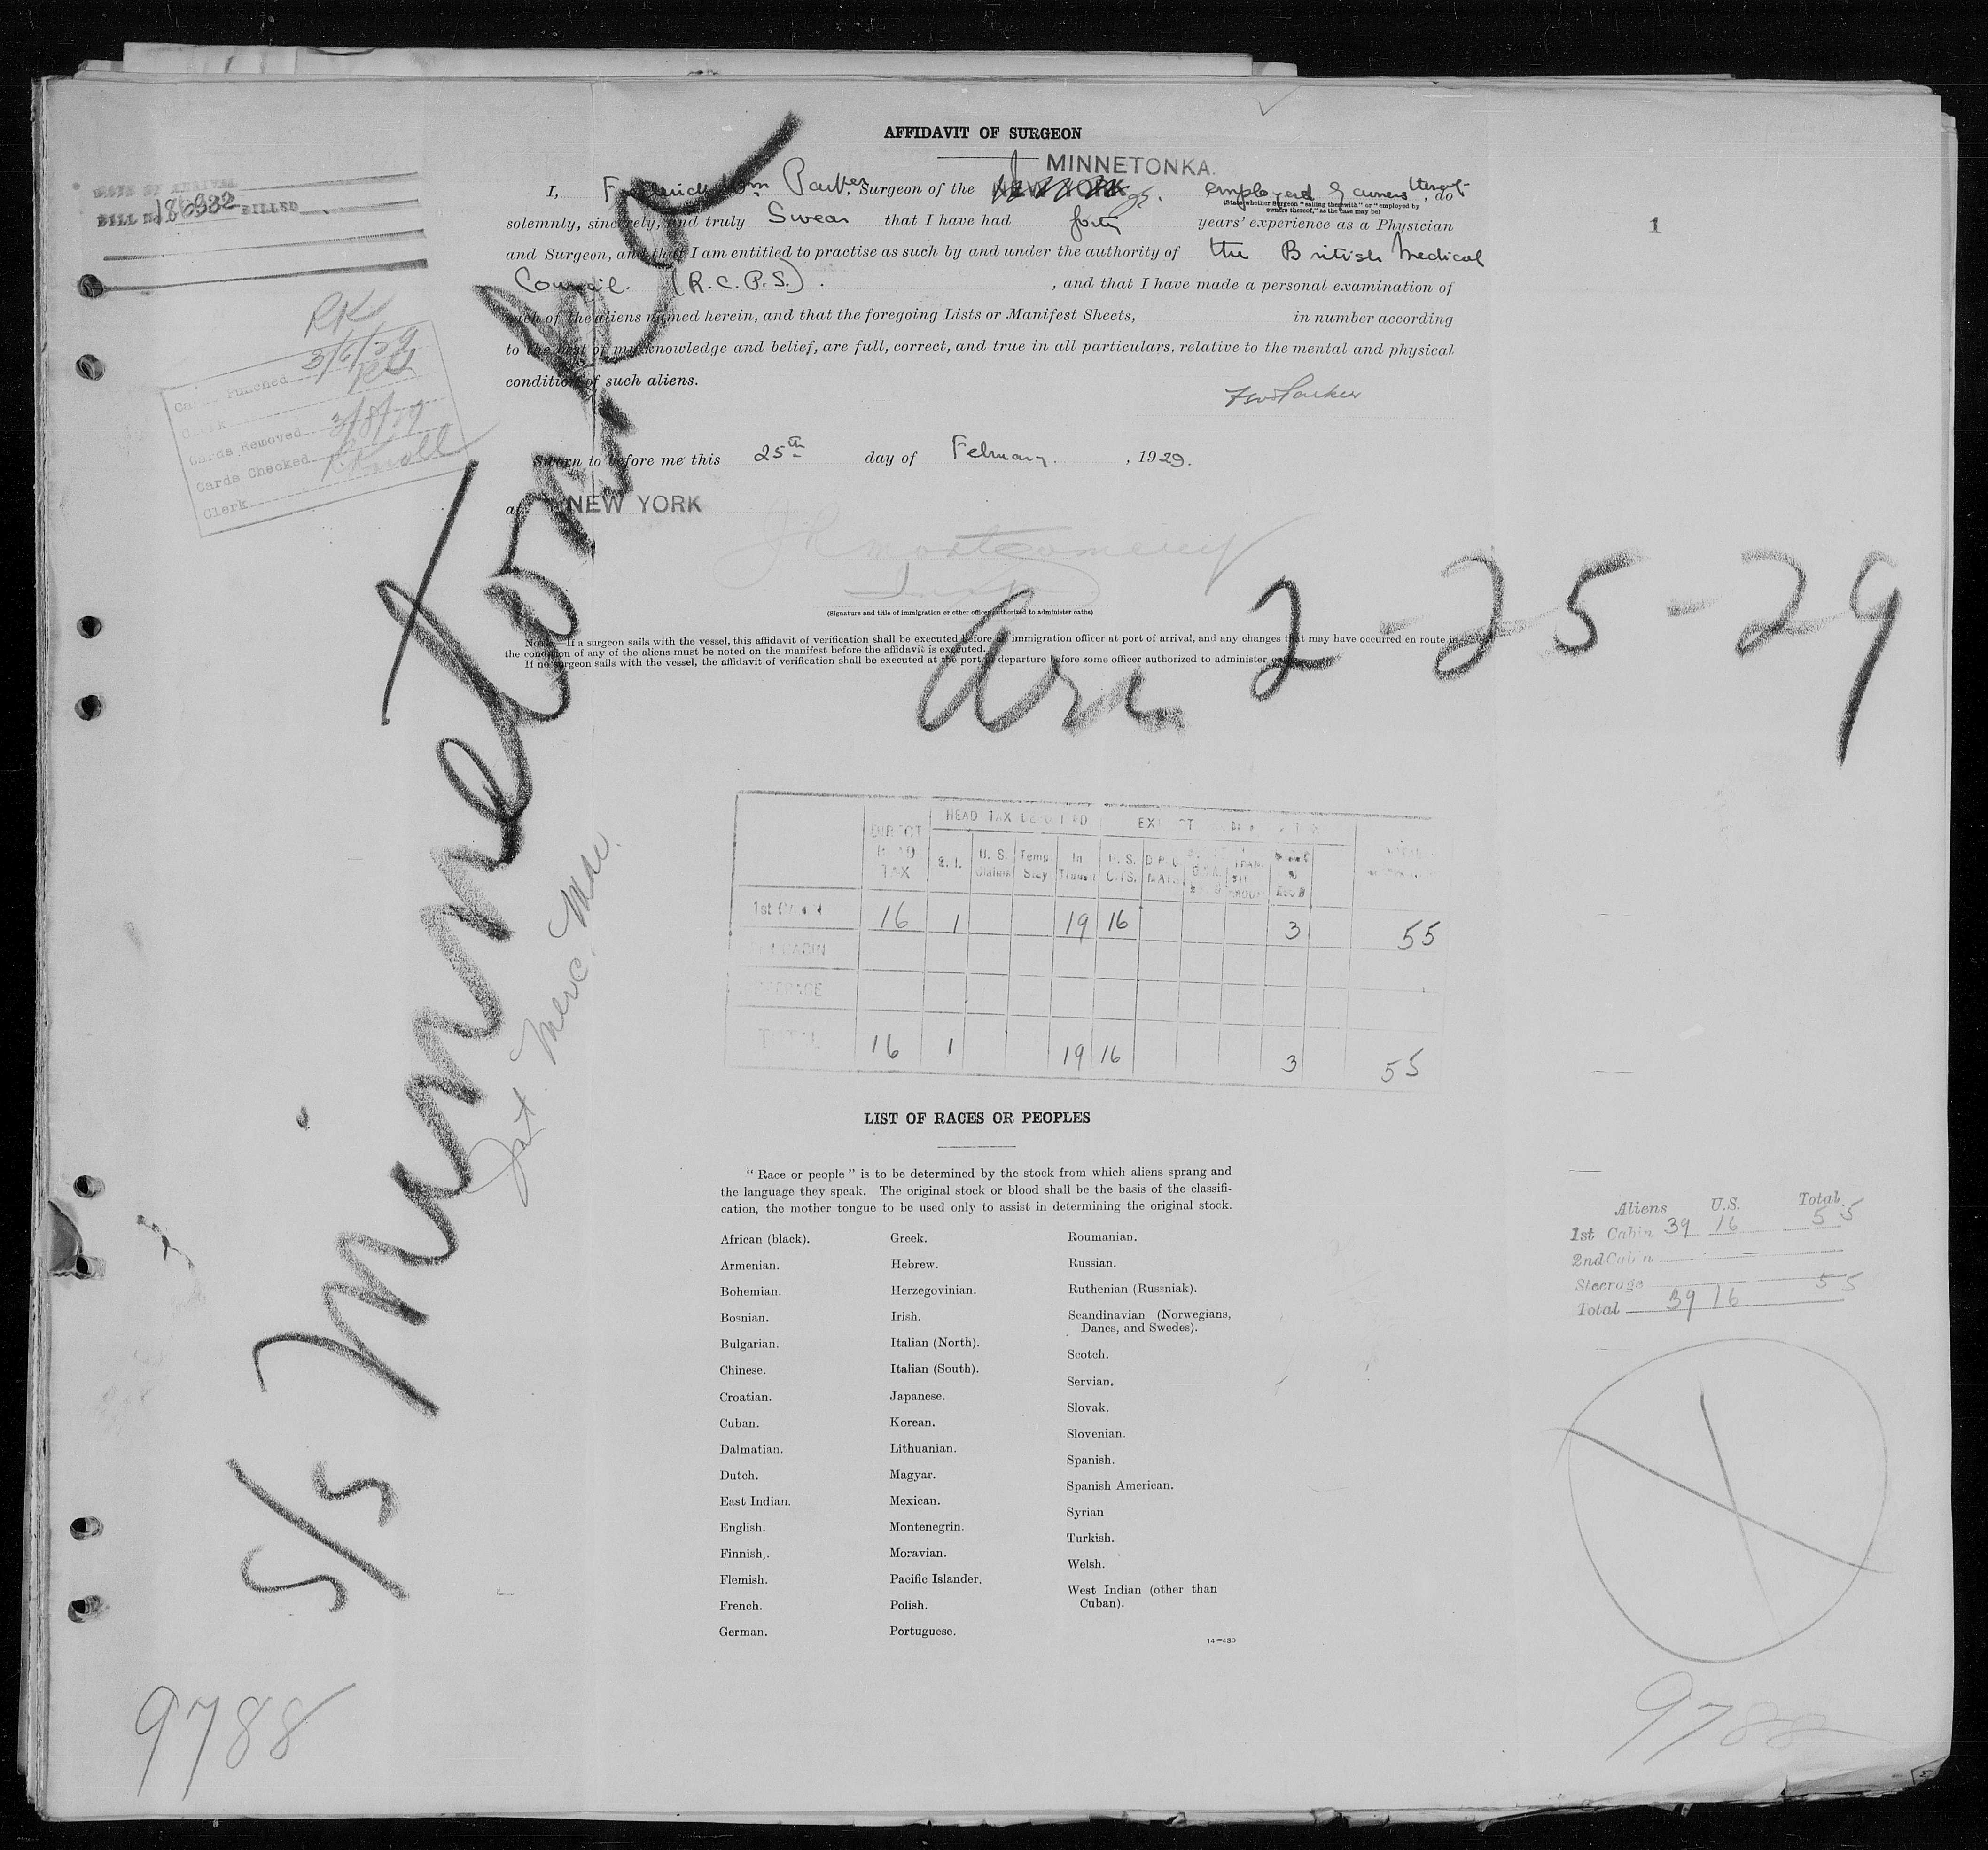 AFFIDAVIT OF SURGEON
MINNETONKA.
I, Frederick Wm Parker, Surgeon of the employed by owners thereof, do
(State whether Surgeon "sailing therewith" or "employed by
owners thereof," as the case may be)
solemnly, sincerely, and truly Swear that I have had forty years' experience as a Physician
and Surgeon, and that I am entitled to practise as such by and under the authority of the British Medical
Council. (R.C.P.S.). , and that I have made a personal examination of
each of the aliens named herein, and that the foregoing Lists or Manifest Sheets, in number according
to the best of my knowledge and belief, are full, correct, and true in all particulars, relative to the mental and physical
condition of such aliens.
FWParker
Sworn to before me this 25th day of February. , 1929.
at NEW YORK
JRMontgomery
(Signature and title of immigration or other officer authorized to administer oaths)
NOTE.—If a surgeon sails with the vessel, this affidavit of verification shall be executed before an immigration officer at port of arrival, and any changes that may have occurred en route in
the condition of any of the aliens must be noted on the manifest before the affidavit is executed.
If no surgeon sails with the vessel, the affidavit of verification shall be executed at the port of departure before some officer authorized to administer oaths.
DATE OF ARRIVAL
BILL No. 186932 BILLED
1
RK
Cards Punched 3/6/29
Clerk RK
Cards Removed 3/8/29
Cards Checked
Clerk
S/S Minnetonka
Int. Merc. Mar.
Arr 2-25-29
DIRECT HEAD TAX
HEAD TAX
S. I.
U. S.
Temp. Stay
In Transit
U. S. CITS.
1st 16 1 19 16 3 55
CABIN
STEERAGE
TOTAL 16 1 19 16 3 55
LIST OF RACES OR PEOPLES
"Race or people" is to be determined by the stock from which aliens sprang and
the language they speak. The original stock or blood shall be the basis of the classifi-
cation, the mother tongue to be used only to assist in determining the original stock.
African (black).
Armenian.
Bohemian.
Bosnian.
Bulgarian.
Chinese.
Croatian.
Cuban.
Dalmatian.
Dutch.
East Indian.
English.
Finnish.
Flemish.
French.
German.
Greek.
Hebrew.
Herzegovinian.
Irish.
Italian (North).
Italian (South).
Japanese.
Korean.
Lithuanian.
Magyar.
Mexican.
Montenegrin.
Moravian.
Pacific Islander.
Polish.
Portuguese.
Roumanian.
Russian.
Ruthenian (Russniak).
Scandinavian (Norwegians,
Danes, and Swedes).
Scotch.
Servian.
Slovak.
Slovenian.
Spanish.
Spanish American.
Syrian
Turkish.
Welsh.
West Indian (other than
Cuban).
14—480
Aliens U.S. Total
1st Cabin 39 16 55
2nd Cabin
Steerage
Total 39 16 55
9788
9788